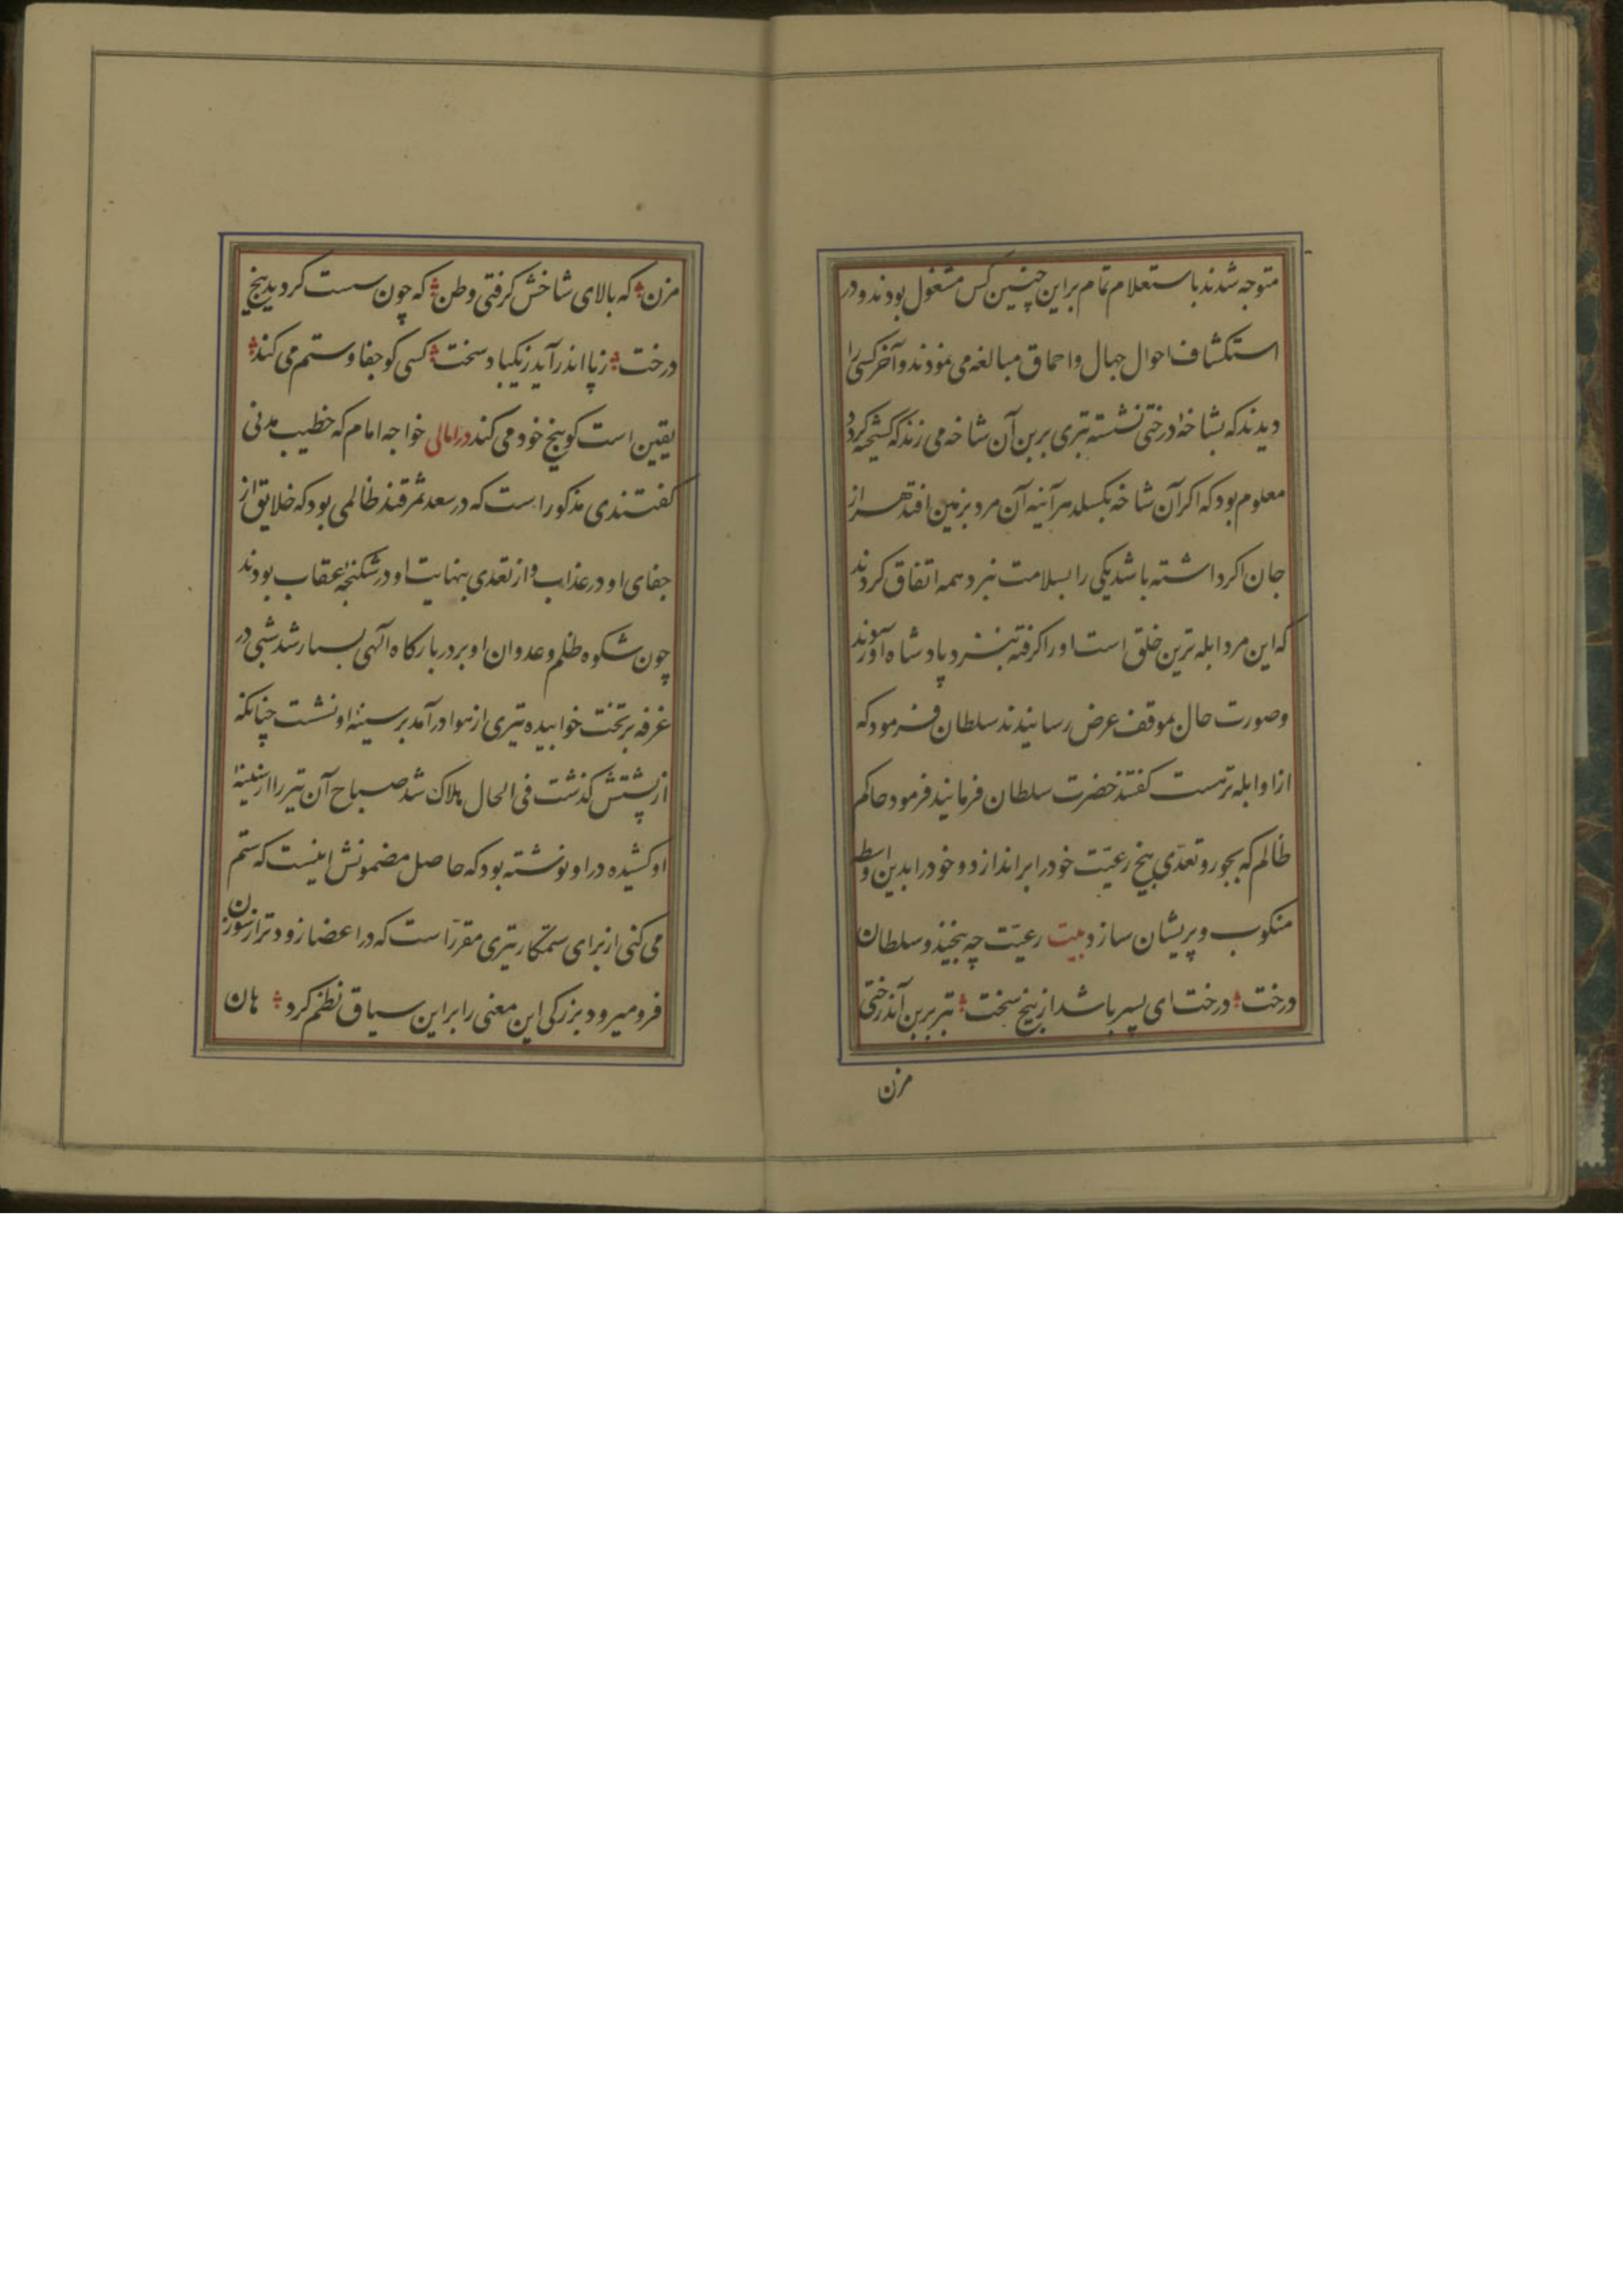 متوجه شدند باستعلام تمام براین چنین کس مشغول بودند و در
استکشاف احوال جهال و احماق مبالغه می نمودند و آخر کسی را
دیدند که بشاخهٔ درختی نشسته تبری بر بن آن شاخه می زند که
معلوم بود که اکر آن شاخه بکسلد هر آینه آن مرد بزمین افتد هزار
جان اکر داشته باشد یکی را بسلامت نبرد همه اتفاق کردند
که این مرد ابله ترین خلق است او را کرفته بنزد پادشاه آوردند
و صورت حال بموقف عرض رسانیدند سلطان فرمود که
ازو ابله تر هست کفتند حضرت سلطان فرمایند فرمود حاکم
ظالم که بجور و تعدّی بیخ رعیّت خود را براندازد و خود را بدین واسطه
منکوب و پریشان سازد بیت رعیّت چه بیخند و سلطان
درخت درخت ای پسر باشد از بیخ سخت تبر بر بن آندرختی
مزن
مزن که بالای شاخش کرفتی وطن که چون سست کردید بیخ
درخت ز پا اندر آید ز یکباد سخت کسی کو جفا و ستم می کند
یقین است کو بیخ خود می کند در امالی خواجه امام که خطیب مدنی
کفتندی مذکور است که در سعد سمرقند ظالمی بود که خلایق از
جفای او در عذاب و از تعدی بنهایت او در شکنجهٔ عقاب بودند
چون شکوه ظلم و عدوان او بر دربارکاه آلهی بسیار شد شبی در
غرفه بر تخت خوابیده تیری از هوا در آمد بر سینهٔ او نشست چنانکه
از پشتش کذشت فی الحال هلاک شد صباح آن تیر را از سینهٔ
او کشیده در او نوشته بود که حاصل مضمونش اینست که ستم
می کنی از برای ستمکار تیری مقرّر است که در اعضا زودتر از سوزن
فرو میرود بزرکی این معنی را براین سیاق نظم کرد هان